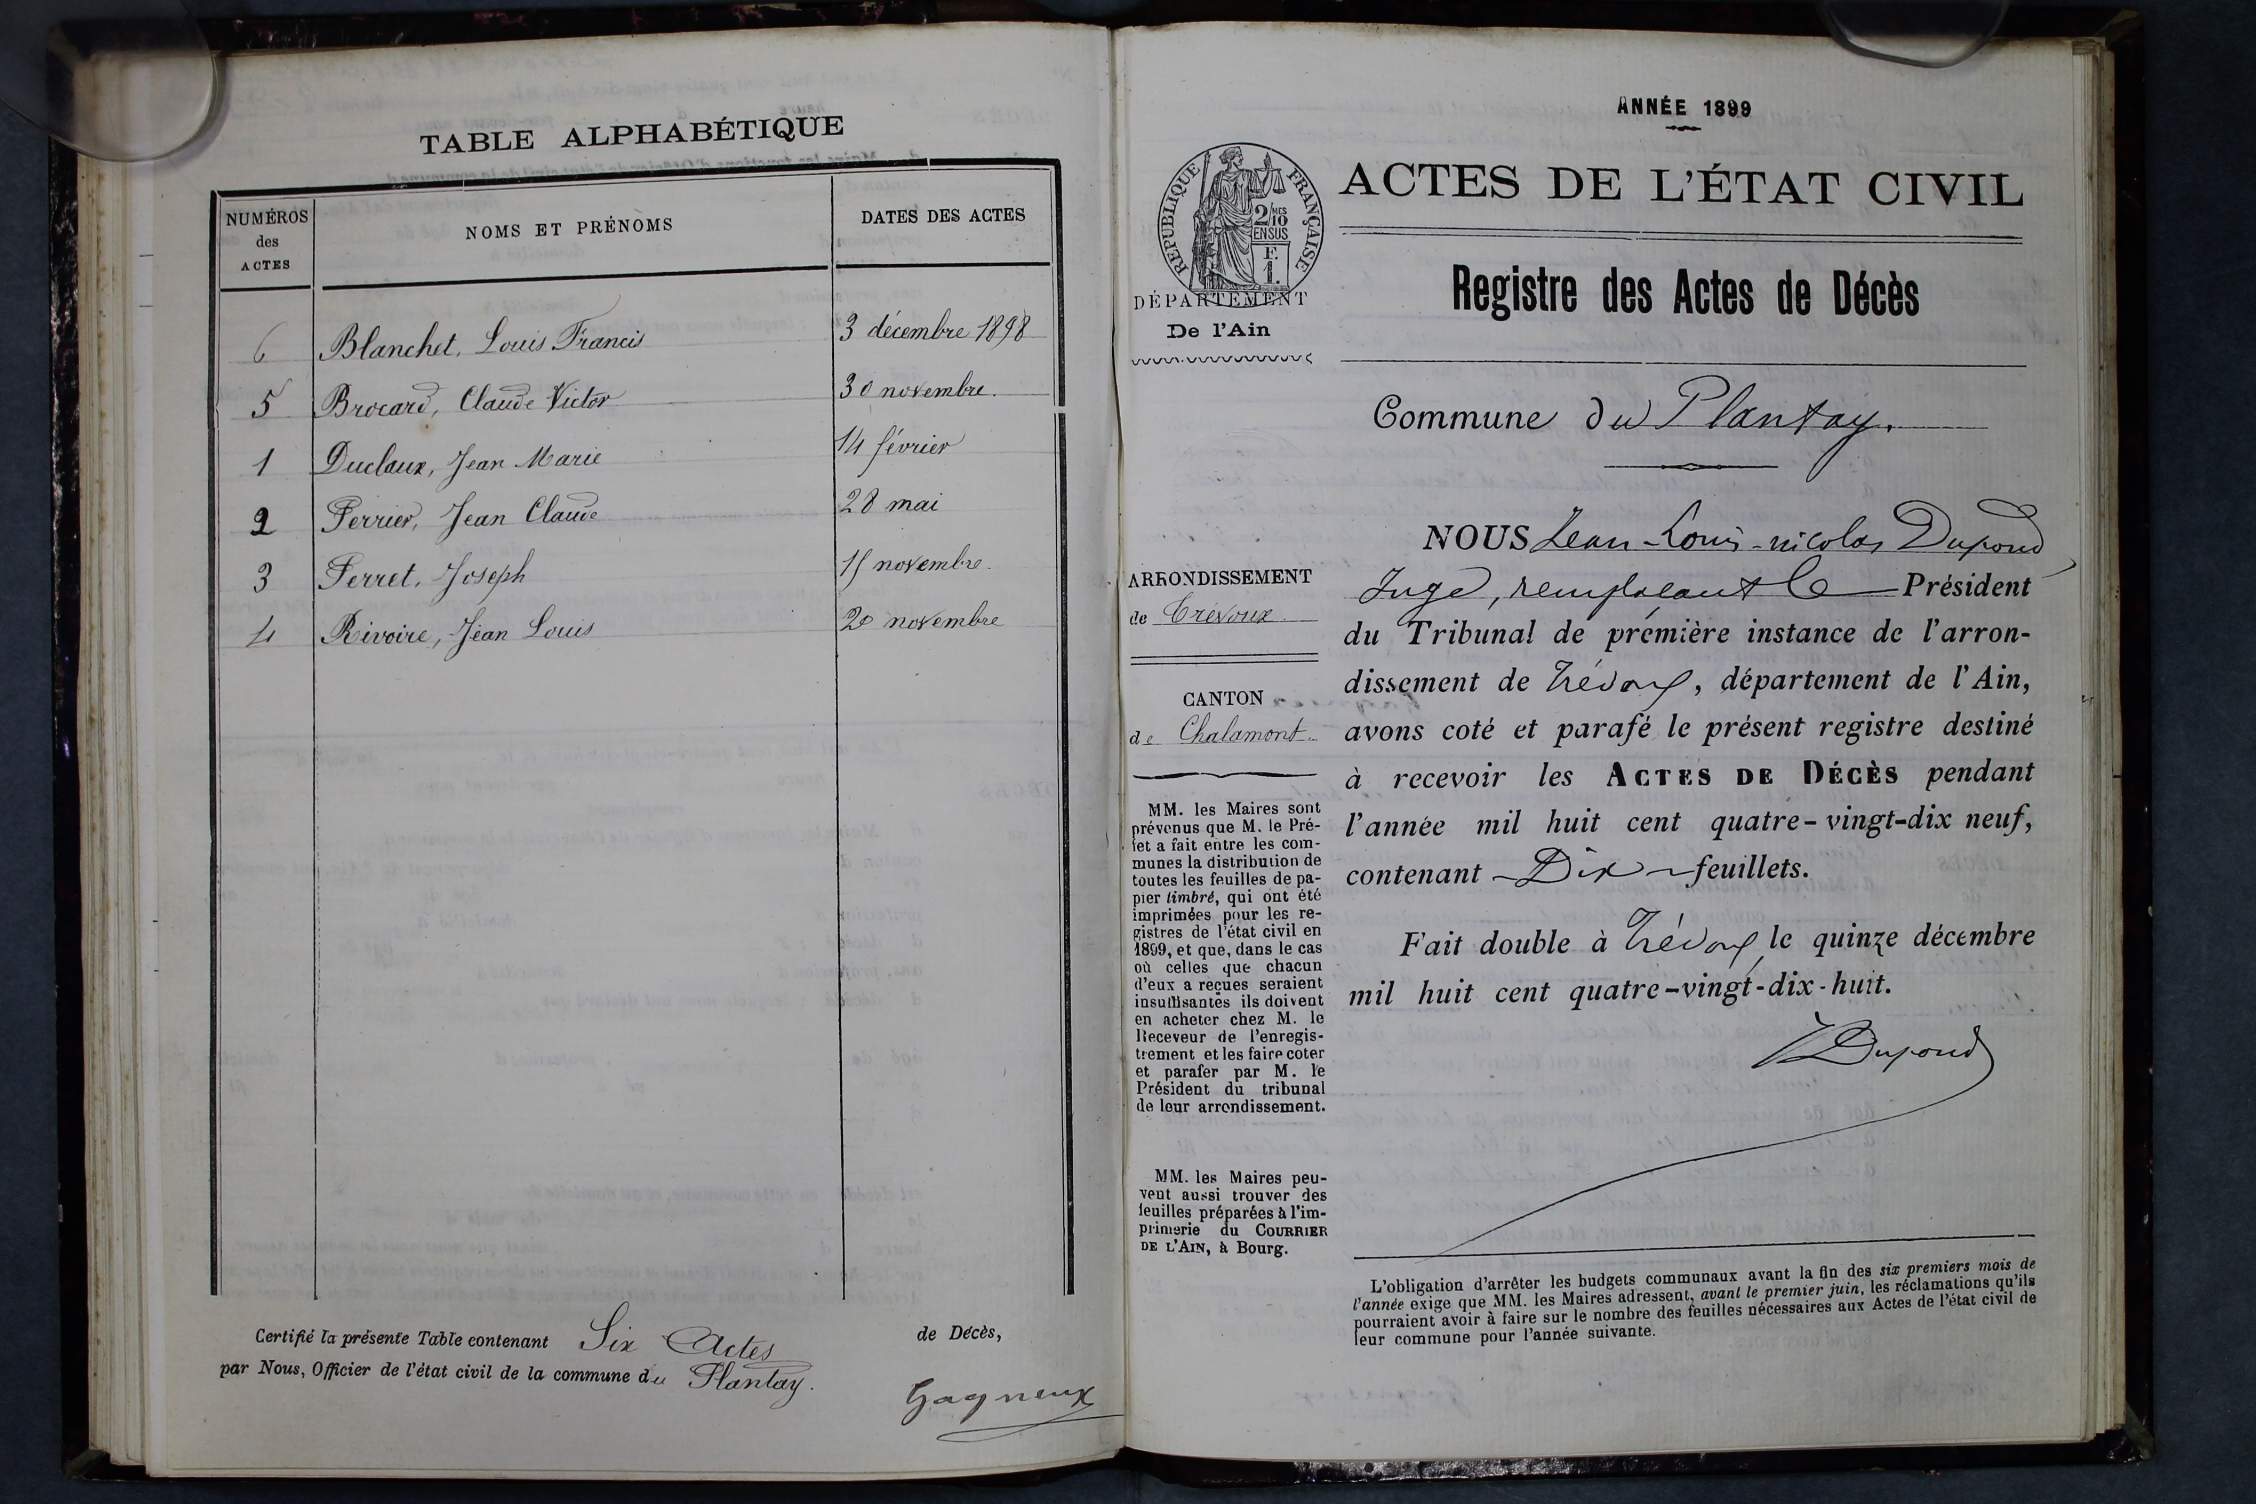 TABLE ALPHABÉTIQUE
NUMÉROS des ACTES
NOMS ET PRÉNOMS
DATES DES ACTES
6 Blanchet, Louis Francis 3 décembre 1898
5 Brocard, Claude Victor 30 novembre.
1 Duclaux, Jean Marie 14 février
2 Perrier, Jean Claude 28 mai
3 Perret, Joseph 15 novembre.
4 Rivoire, Jean Louis 20 novembre
Certifié la présente Table contenant Six Actes de Décès,
par Nous, Officier de l'état civil de la commune du Plantay.
Gagneux
ANNÉE 1899
RÉPUBLIQUE FRANÇAISE
2/10
EN SUS
F.
1.
DÉPARTEMENT
De l'Ain
ACTES DE L'ÉTAT CIVIL
Registre des Actes de Décès
Commune du Plantay.
ARRONDISSEMENT
de Trévoux
CANTON
de Chalamont
MM. les Maires sont
prévenus que M. le Pré-
fet a fait entre les com-
munes la distribution de
toutes les feuilles de pa-
pier timbré, qui ont été
imprimées pour les re-
gistres de l'état civil en
1899, et que, dans le cas
où celles que chacun
d'eux a reçues seraient
insuffisantes ils doivent
en acheter chez M. le
Receveur de l'enregis-
trement et les faire coter
et parafer par M. le
Président du tribunal
de leur arrondissement.
MM. les Maires peu-
vent aussi trouver des
feuilles préparées à l'im-
primerie du COURRIER
DE L'AIN, à Bourg.
NOUS Jean-Louis-nicolas Dupond
Juge, remplacant le Président
du Tribunal de première instance de l'arron-
dissement de Trévoux, département de l'Ain,
avons coté et parafé le présent registre destiné
à recevoir les ACTES DE DÉCÈS pendant
l'année mil huit cent quatre-vingt-dix neuf,
contenant Dix feuillets.
Fait double à Trévoux le quinze décembre
mil huit cent quatre-vingt-dix-huit.
Dupond
L'obligation d'arrêter les budgets communaux avant la fin des six premiers mois de
l'année exige que MM. les Maires adressent, avant le premier juin, les réclamations qu'ils
pourraient avoir à faire sur le nombre des feuilles nécessaires aux Actes de l'état civil de
leur commune pour l'année suivante.